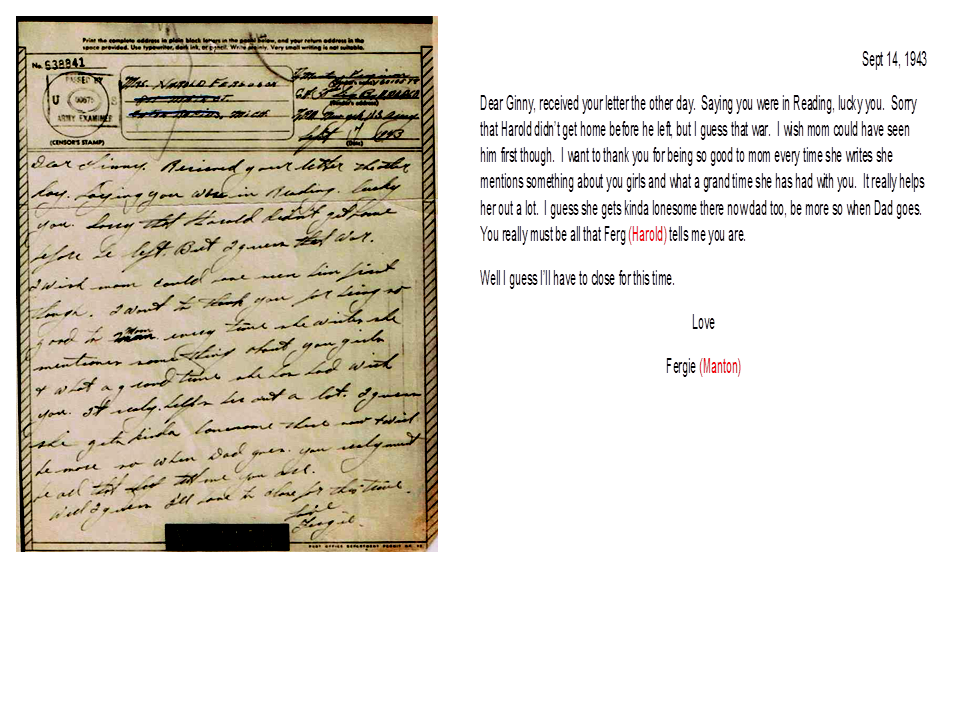 Print the complete address in plain block letters in the panel below, and your return address in the
space provided. Use typewriter, dark ink, or pencil. Write plainly. Very small writing is not suitable.
No. 638841
PASSED BY
U S
ARMY EXAMINER
(CENSOR'S STAMP)
MRS. HAROLD
MICH
(Sender's address)
Sept 1943
(Date)
Dear Ginny. Received your letter the other
day. Saying you were in Reading. lucky
you. Sorry that Harold didn't get home
before he left. But I guess that war.
I wish mom could have seen him first
though. I want to thank you for being so
good to Mom every time she writes she
mentions something about you girls
& what a grand time she has had with
you. It realy helps her out a lot. I guess
she gets kinda lonesome there now & will
be more so when Dad goes. you realy must
be all that tells me you are.
Well I guess I'll have to close for this time.
Love
Fergie.
POST OFFICE DEPARTMENT PERMIT NO.
Sept 14, 1943
Dear Ginny, received your letter the other day. Saying you were in Reading, lucky you. Sorry
that Harold didn't get home before he left, but I guess that war. I wish mom could have seen
him first though. I want to thank you for being so good to mom every time she writes she
mentions something about you girls and what a grand time she has had with you. It really helps
her out a lot. I guess she gets kinda lonesome there now dad too, be more so when Dad goes.
You really must be all that Ferg (Harold) tells me you are.
Well I guess I'll have to close for this time.
Love
Fergie (Manton)